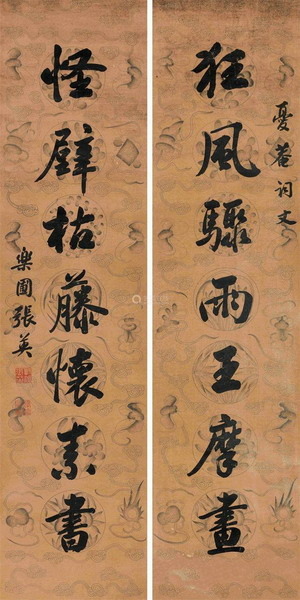 狂風驟雨王摩畫
憂菴詞丈
怪壁枯藤懷素書
樂圃張英